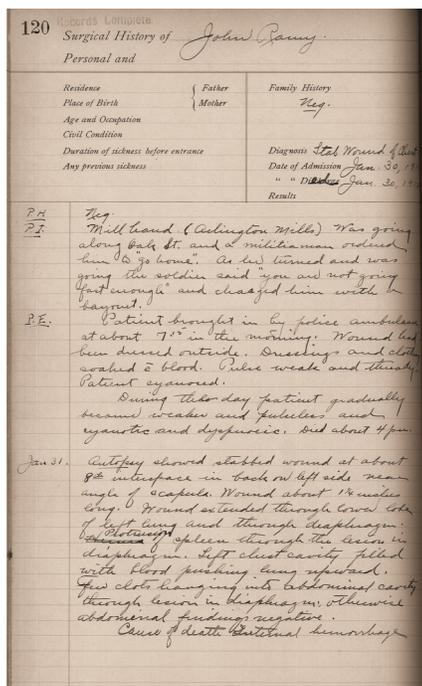 120
Records Complete
Surgical History of John Ramy.
Personal and
Residence
Father
Family History
Place of Birth
Mother
Neg.
Age and Occupation
Civil Condition
Duration of sickness before entrance
Diagnosis Stab Wound of Chest
Any previous sickness
Date of Admission Jan. 30, 19
" " Jan. 30, 191
Results
P.H. Neg.
P.I. Mill hand. (Arlington Mills) Was going
along Oak St. and a militiaman ordered
him to "go home". As he turned and was
going the soldier said "you are not going
fast enough" and charged him with a
bayonet.
P.E. Patient brought in by police ambulance
at about 7 15 in the morning. Wound had
been dressed outside. Dressings and clothes
soaked c̄ blood. Pulse weak and thready
Patient cyanosed.
During the day patient gradually
became weaker and pulseless and
cyanotic and dyspnoeic. Died about 4 pm.
Jan 31. Autopsy showed stabbed wound at about
8th interspace in back on left side near
angle of scapula. Wound about 1¼ inches
long. Wound extended through lower lobe
of left lung and through diaphragm.
Protrusion of spleen through the lesion in
diaphragm. Left chest cavity filled
with blood pushing lung upward.
Few clots hanging into abdominal cavity
through lesion in diaphragm, otherwise
abdominal findings negative.
Cause of death Internal hemorrhage